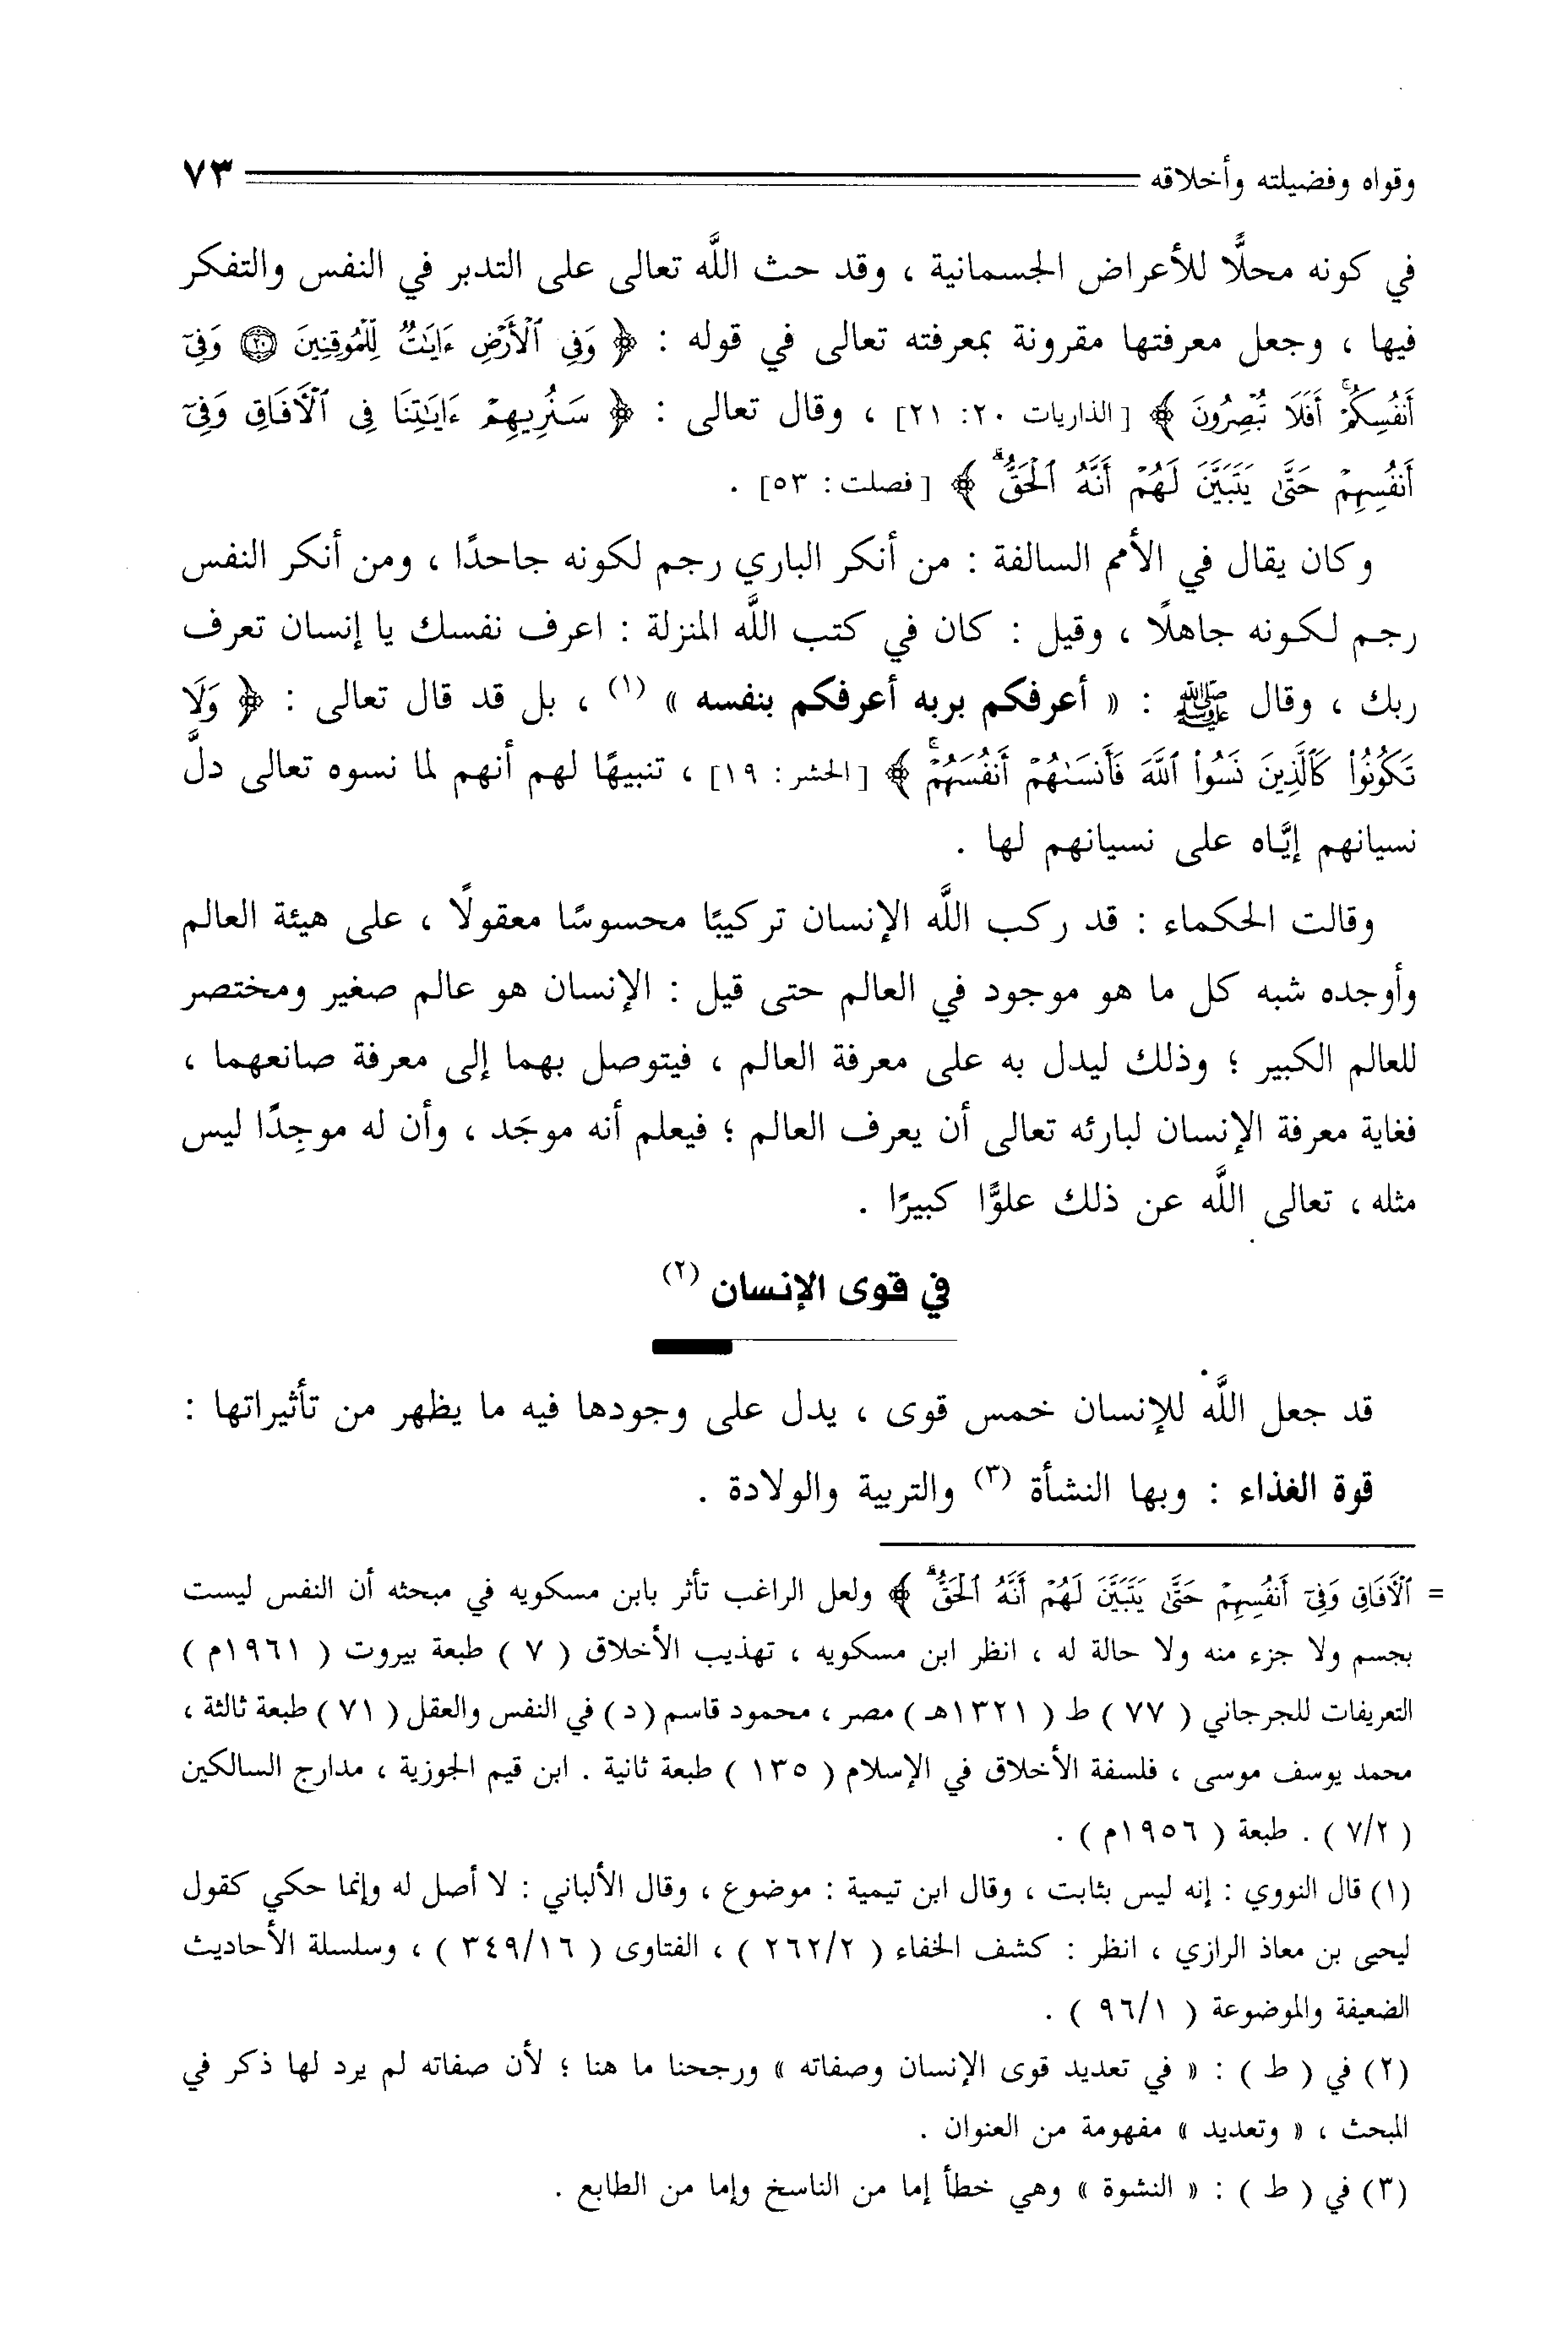 وقواه وفضيلته وأخلاقه ٧٣
في كونه محلًّا للأعراض الجسمانية ، وقد حث اللَّه تعالى على التدبر في النفس والتفكر
فيها ، وجعل معرفتها مقرونة بمعرفته تعالى في قوله : ﴿ وَفِى ٱلْأَرْضِ ءَايَـٰتٌ لِّلْمُوقِنِينَ ۝٢٠ وَفِىٓ
أَنفُسِكُمْ ۚ أَفَلَا تُبْصِرُونَ ﴾ [ الذاريات ٢٠: ٢١] ، وقال تعالى : ﴿ سَنُرِيهِمْ ءَايَـٰتِنَا فِى ٱلْـَٔافَاقِ وَفِىٓ
أَنفُسِهِمْ حَتَّىٰ يَتَبَيَّنَ لَهُمْ أَنَّهُ ٱلْحَقُّ ۗ ﴾ [ فصلت : ٥٣] .
وكان يقال في الأمم السالفة : من أنكر الباري رجم لكونه جاحدًا ، ومن أنكر النفس
رجم لكونه جاهلًا ، وقيل : كان في كتب اللَّه المنزلة : اعرف نفسك يا إنسان تعرف
ربك ، وقال ﷺ : « أعرفكم بربه أعرفكم بنفسه » (١) ، بل قد قال تعالى : ﴿ وَلَا
تَكُونُوا۟ كَٱلَّذِينَ نَسُوا۟ ٱللَّهَ فَأَنسَىٰهُمْ أَنفُسَهُمْ ۚ ﴾ [ الحشر : ١٩] ، تنبيهًا لهم أنهم لما نسوه تعالى دلَّ
نسيانهم إيَّاه على نسيانهم لها .
وقالت الحكماء : قد ركب اللَّه الإنسان تركيبًا محسوسًا معقولًا ، على هيئة العالم
وأوجده شبه كل ما هو موجود في العالم حتى قيل : الإنسان هو عالم صغير ومختصر
للعالم الكبير ؛ وذلك ليدل به على معرفة العالم ، فيتوصل بهما إلى معرفة صانعهما ،
فغاية معرفة الإنسان لبارئه تعالى أن يعرف العالم ؛ فيعلم أنه موجَد ، وأن له موجِدًا ليس
مثله ، تعالى اللَّه عن ذلك علوًّا كبيرًا .
في قوى الإنسان (٢)
قد جعل اللَّه للإنسان خمس قوى ، يدل على وجودها فيه ما يظهر من تأثيراتها :
قوة الغذاء : وبها النشأة (٣) والتربية والولادة .
= ٱلْـَٔافَاقِ وَفِىٓ أَنفُسِهِمْ حَتَّىٰ يَتَبَيَّنَ لَهُمْ أَنَّهُ ٱلْحَقُّ ۗ ﴾ ولعل الراغب تأثر بابن مسكويه في مبحثه أن النفس ليست
بجسم ولا جزء منه ولا حالة له ، انظر ابن مسكويه ، تهذيب الأخلاق ( ٧ ) طبعة بيروت ( ١٩٦١م )
التعريفات للجرجاني ( ٧٧ ) ط ( ١٣٢١هـ ) مصر ، محمود قاسم ( د ) في النفس والعقل ( ٧١ ) طبعة ثالثة ،
محمد يوسف موسى ، فلسفة الأخلاق في الإسلام ( ١٣٥ ) طبعة ثانية . ابن قيم الجوزية ، مدارج السالكين
( ٧/٢ ) . طبعة ( ١٩٥٦م ) .
(١) قال النووي : إنه ليس بثابت ، وقال ابن تيمية : موضوع ، وقال الألباني : لا أصل له وإنما حكي كقول
ليحيى بن معاذ الرازي ، انظر : كشف الخفاء ( ٢٦٢/٢ ) ، الفتاوى ( ٣٤٩/١٦ ) ، وسلسلة الأحاديث
الضعيفة والموضوعة ( ٩٦/١ ) .
(٢) في ( ط ) : « في تعديد قوى الإنسان وصفاته » ورجحنا ما هنا ؛ لأن صفاته لم يرد لها ذكر في
المبحث ، « وتعديد » مفهومة من العنوان .
(٣) في ( ط ) : « النشوة » وهي خطأ إما من الناسخ وإما من الطابع .